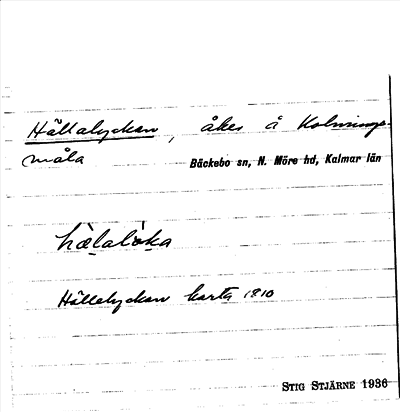 Hällalyckan, åker å Kolminge-
måla Bäckebo sn, N. Möre hd, Kalmar län
hæ̀lalö̀ka
Hällelyckan karta 1810
STIG STJÄRNE 1936